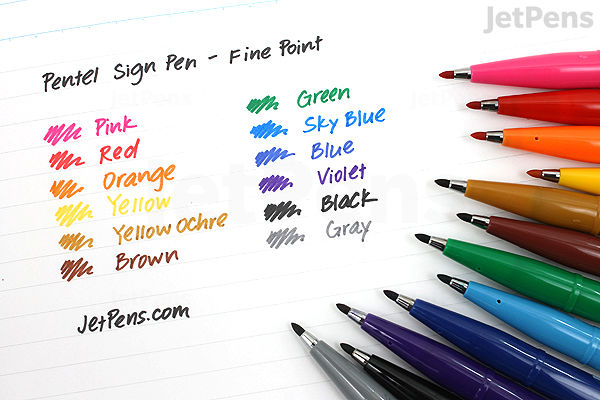 JetPens
Pentel Sign Pen - Fine Point
Pink
Red
Orange
Yellow
Yellow Ochre
Brown
Green
Sky Blue
Blue
Violet
Black
Gray
JetPens.com
JetPens
JetPens
JetPens